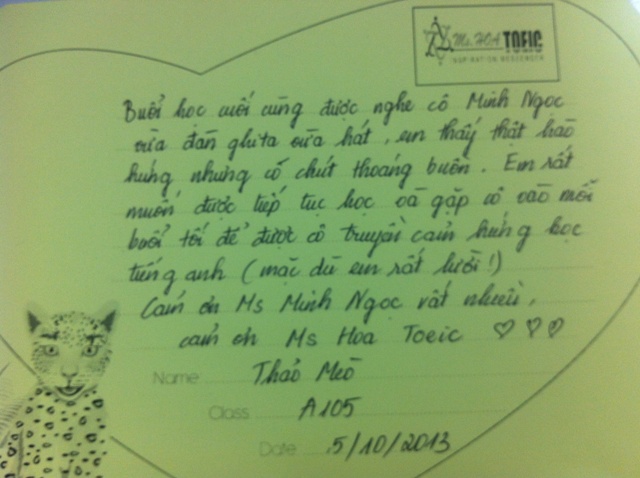 Ms. HOA TOEIC
INSPIRATION MESSENGER
Buổi học cuối cùng được nghe cô Minh Ngọc
vừa đàn ghita vừa hát, em thấy thật hào
hứng nhưng có chút thoáng buồn. Em rất
muốn được tiếp tục học và gặp cô vào mỗi
buổi tối để được cô truyền cảm hứng học
tiếng anh (mặc dù em rất lười!)
Cám ơn Ms Minh Ngọc rất nhiều,
cám ơn Ms Hoa Toeic ♡ ♡ ♡
Name Thảo Mèo
Class A105
Date 5/10/2013